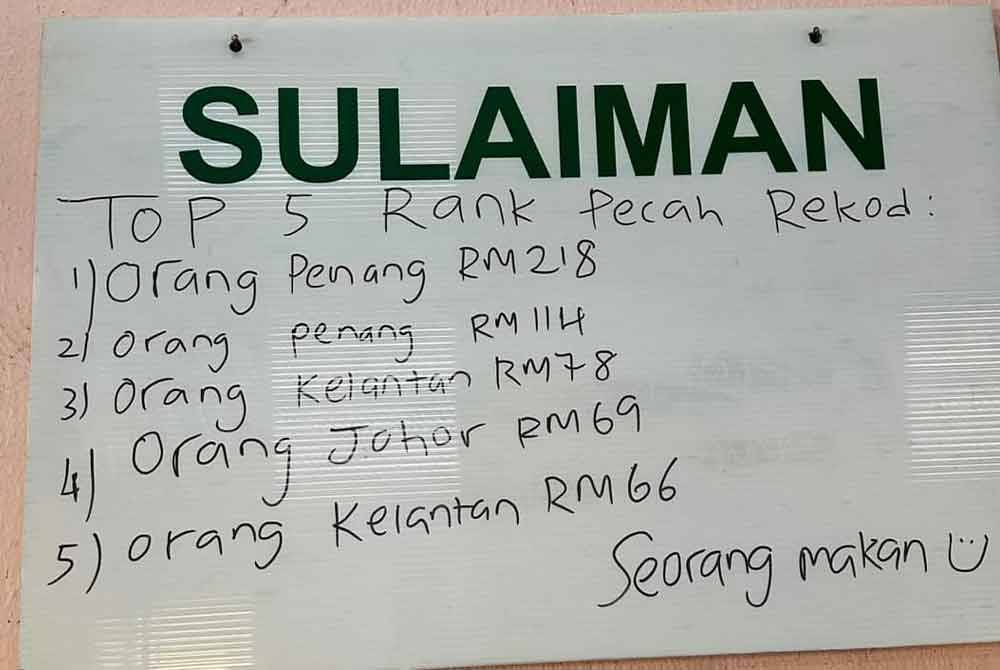 SULAIMAN
TOP 5 Rank Pecah Rekod:
1) Orang Penang RM218
2) orang penang RM114
3) Orang Kelantan RM78
4) Orang Johor RM69
5) orang Kelantan RM66
Seorang makan